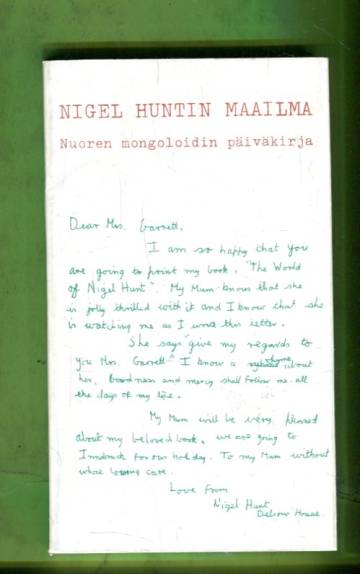 NIGEL HUNTIN MAAILMA
Nuoren mongoloidin päiväkirja
Dear Mrs. Garrett.
I am so happy that you
are going to print my book. "The World
of Nigel Hunt". My Mum knows that she
is jolly thrilled with it and I know that she
is watching me as I write this letter.
She says "give my regards to
you Mrs. Garrett" I know a rhyme about
her. Goodness and mercy shall follow me all
the days of my life.
My Mum will be very pleased
about my beloved book. we are going to
Innsbruck for our holiday. To my Mum without
whose loving care.
Love from
Nigel Hunt
House